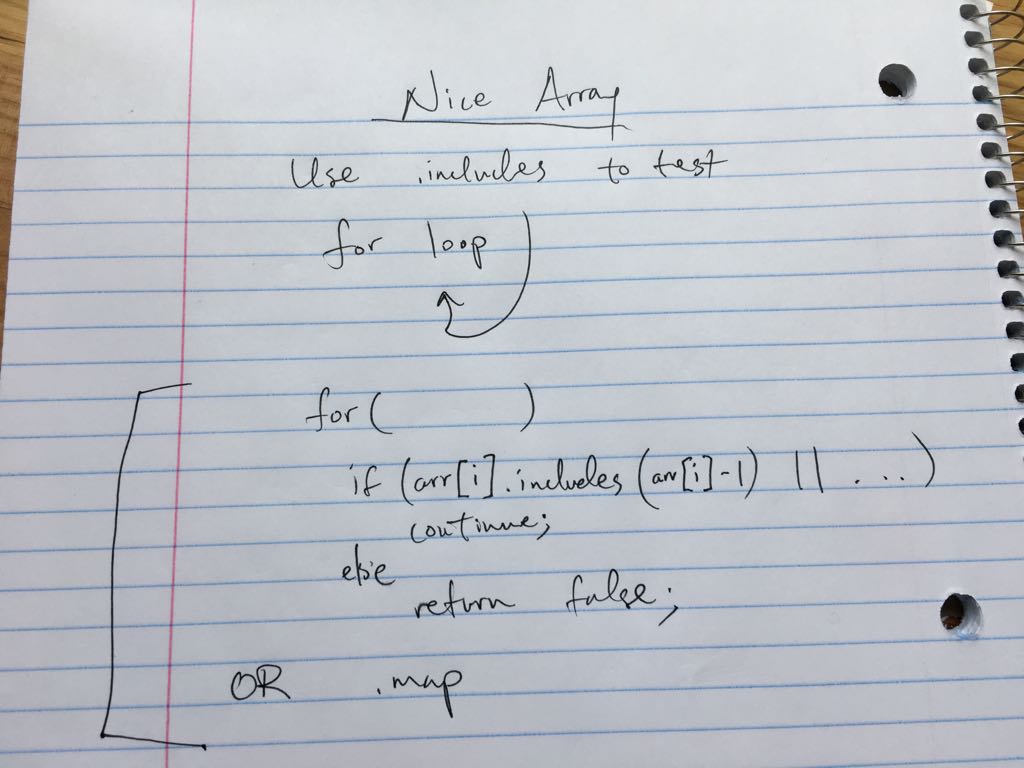 Nice Array
Use .includes to test
for loop
for ( )
if (arr[i].includes (arr[i]-1) || ....)
continue;
else
return false;
OR .map